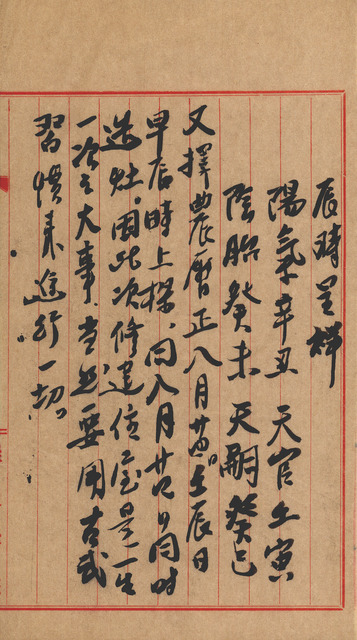 辰時呈祥
陽氣辛丑 天官壬寅
陰胎癸未 天嗣癸巳
又擇農曆正八月廿四壬辰日
早辰時上樑，同八月廿四日同時
造灶。因此次修建住屋是一生
一次之大事，當然要用古式
習慣來進行一切。